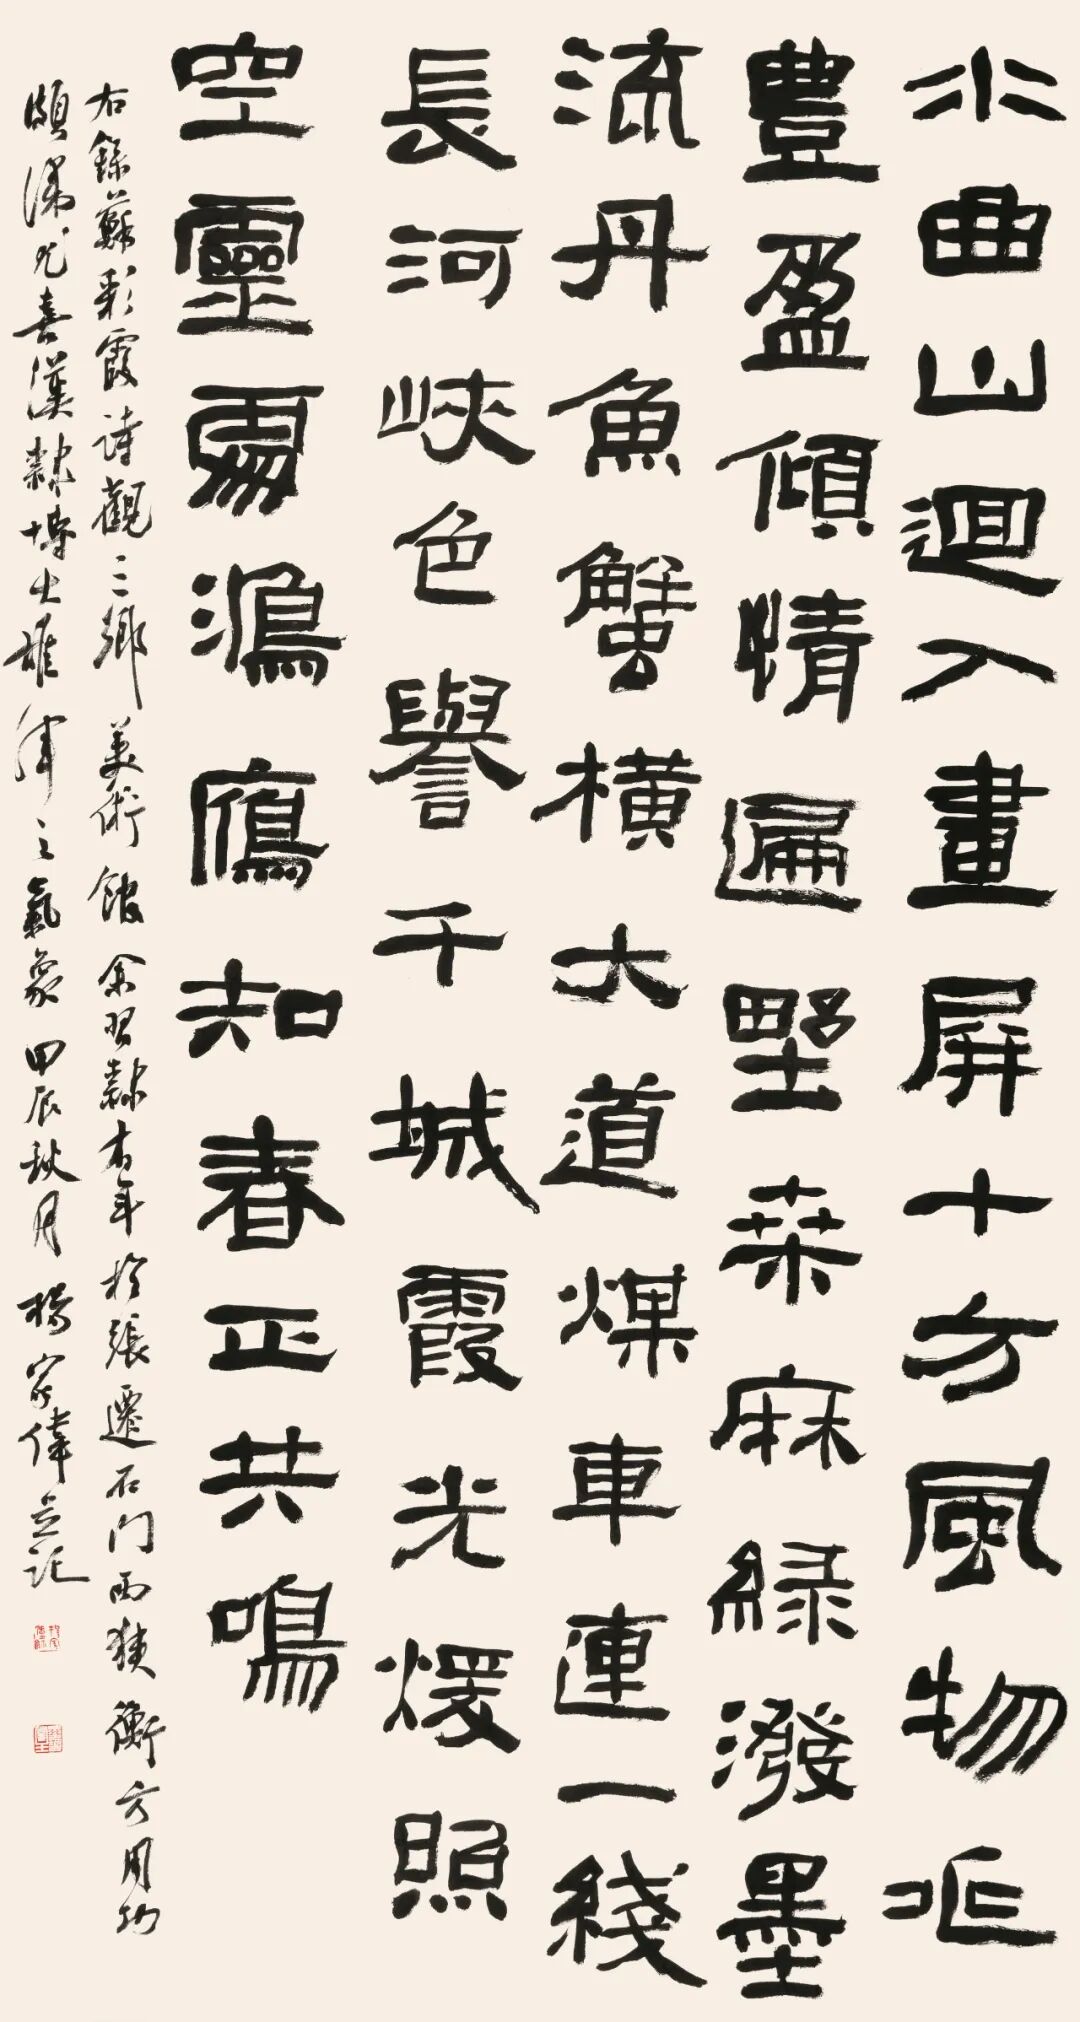 水曲山迴入畫屏十方風物
豐盈傾情遍野桑麻綠潑墨
流丹魚蟹橫大道煤車連一綫
長河峽色譽千城霞光煖照
空靈鴻鴈知春正共鳴
右錄蘇彩霞詩觀鄉美術館余習隸有年於張遷石門西狹衡方用功
頗深尤喜漢隸博大雄渾之氣象甲辰秋月楊家偉並記